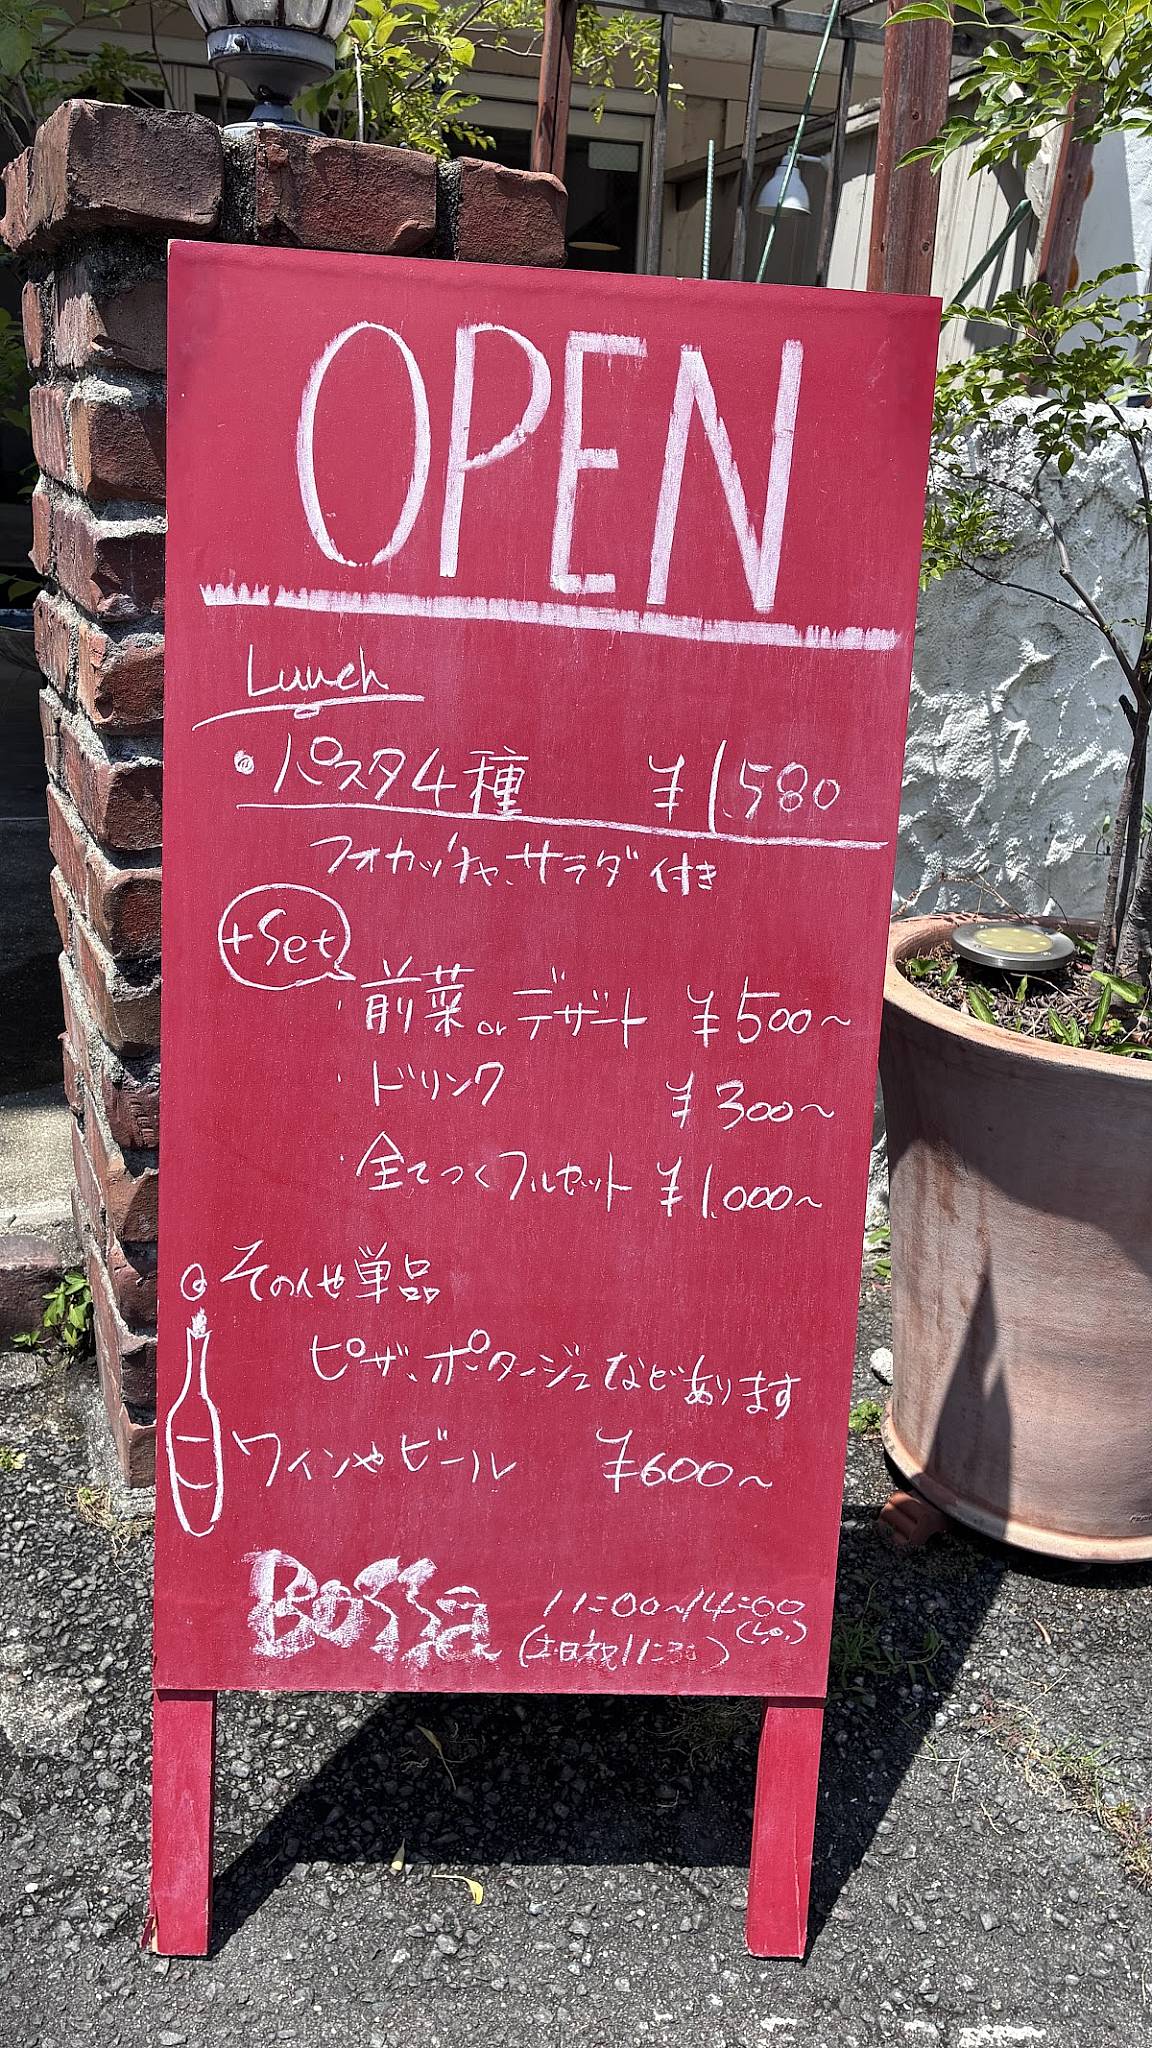 OPEN
Lunch
・パスタ4種 ¥1,580
フォカッチャ、サラダ付き
+Set
・前菜 or デザート ¥500~
・ドリンク ¥300~
・全てつくフルセット ¥1,000~
その他単品
ピザ、ポタージュなどあります
ワインやビール ¥600~
Bossa 11:00~14:00
(土日祝11:30) (L.O.)